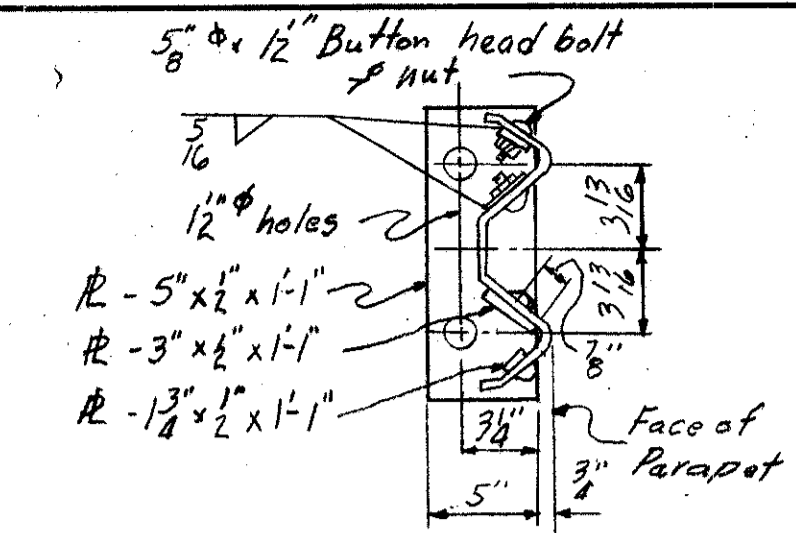 5/8" ϕ x 1 1/2" Button head bolt
& nut
5/16
1 1/2" ϕ holes
PL - 5" x 1/2" x 1'-1"
PL - 3" x 1/2" x 1'-1"
PL - 1 3/4" x 1/2" x 1'-1"
3 13/16
3 13/16
7/8"
3 1/4"
5"
3/4"
Face of
Parapet